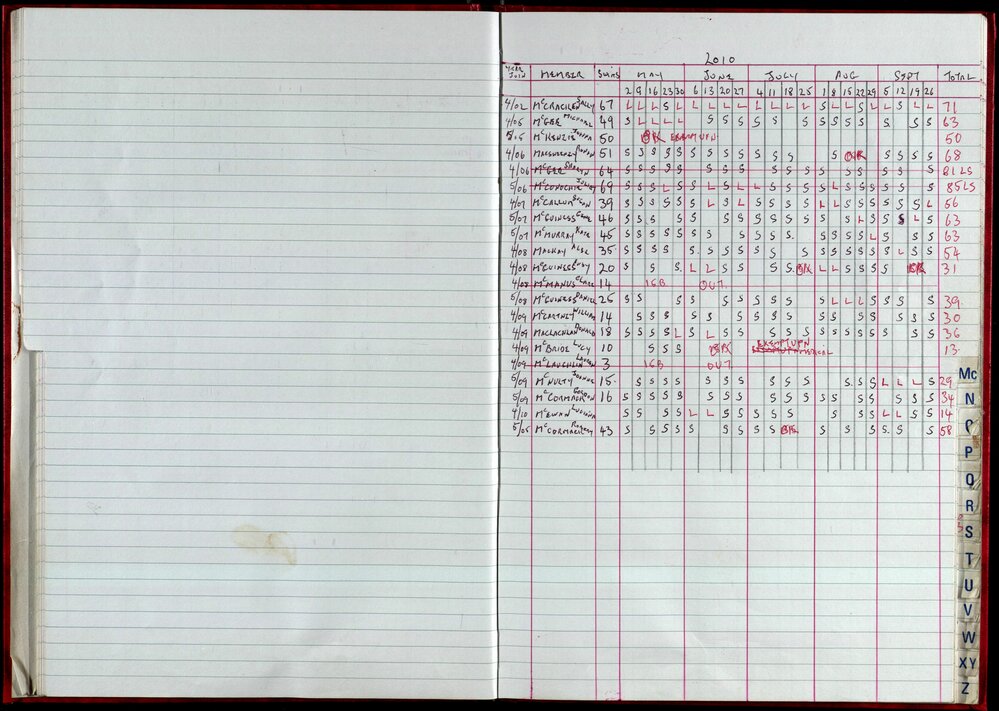 2010
YEAR JOIN MEMBER SWIMS MAY JUNE JULY AUG SEPT TOTAL
2 9 16 23 30 6 13 20 27 4 11 18 25 1 8 15 22 29 5 12 19 26
4/02 McCRACKEN SALLY 67 L L L S L L L L L L L L L L L S L L S L L 71
4/05 McGEE MICHAEL 49 S L L L L S S S S S S S S S S S S S S 63
5/05 McKENZIE 50 EXEMPTN 50
4/06 51 S S S S S S S S S S S S S S S S S S 68
4/06 McGEE 64 S S S S S S S S S S S S S S S S S S S 81 LS
5/06 McCONOCHIE 69 S S S L S S L S L L S S S S L S S S S S S S 85 LS
4/07 McCALLUM 39 S S S S S L S L S S S S L L S S S S S S L 56
5/07 McGUINESS 46 S S S S S S S S S S S S S S L S S S L S 63
5/07 McMURRAY KATE 45 S S S S S S S S S S S S S S S L S S S 63
4/08 MACKAY ALEC 35 S S S S S S S S S S S S S S S S S L S S 54
4/08 McGUINESS 20 S S S L L S S S S L L S S S S S 31
4/08 McMANUS CLARE 14 IGB OUT.
5/08 McGUINESS DANIEL 26 S S S S S S S S S S S L L L S S S S 39
4/09 McCARTNEY WILLIAM 14 S S S S S S S S S S S S S S S S 30
4/09 MACLACHLAN DONALD 18 S S S S L S L S S S S S S S S S S S S S 36
4/09 McBRIDE LUCY 10 S S S EXEMPTN MEDICAL 13
4/09 McLAUGHLIN LAUREN 3 IGB OUT
5/09 McNULTY JOANNE 15 S S S S S S S S S S S S S L L L S 29
5/09 McCORMACK GORDON 16 S S S S S S S S S S S S S S S S S S 34
4/10 McEWAN LUCINDA S S S S L L S S S S S S S S L L S S 14
5/05 McCORMACK 43 S S S S S S S S S S S S S S S 58
Mc
N
P
Q
R
S
T
U
V
W
XY
Z